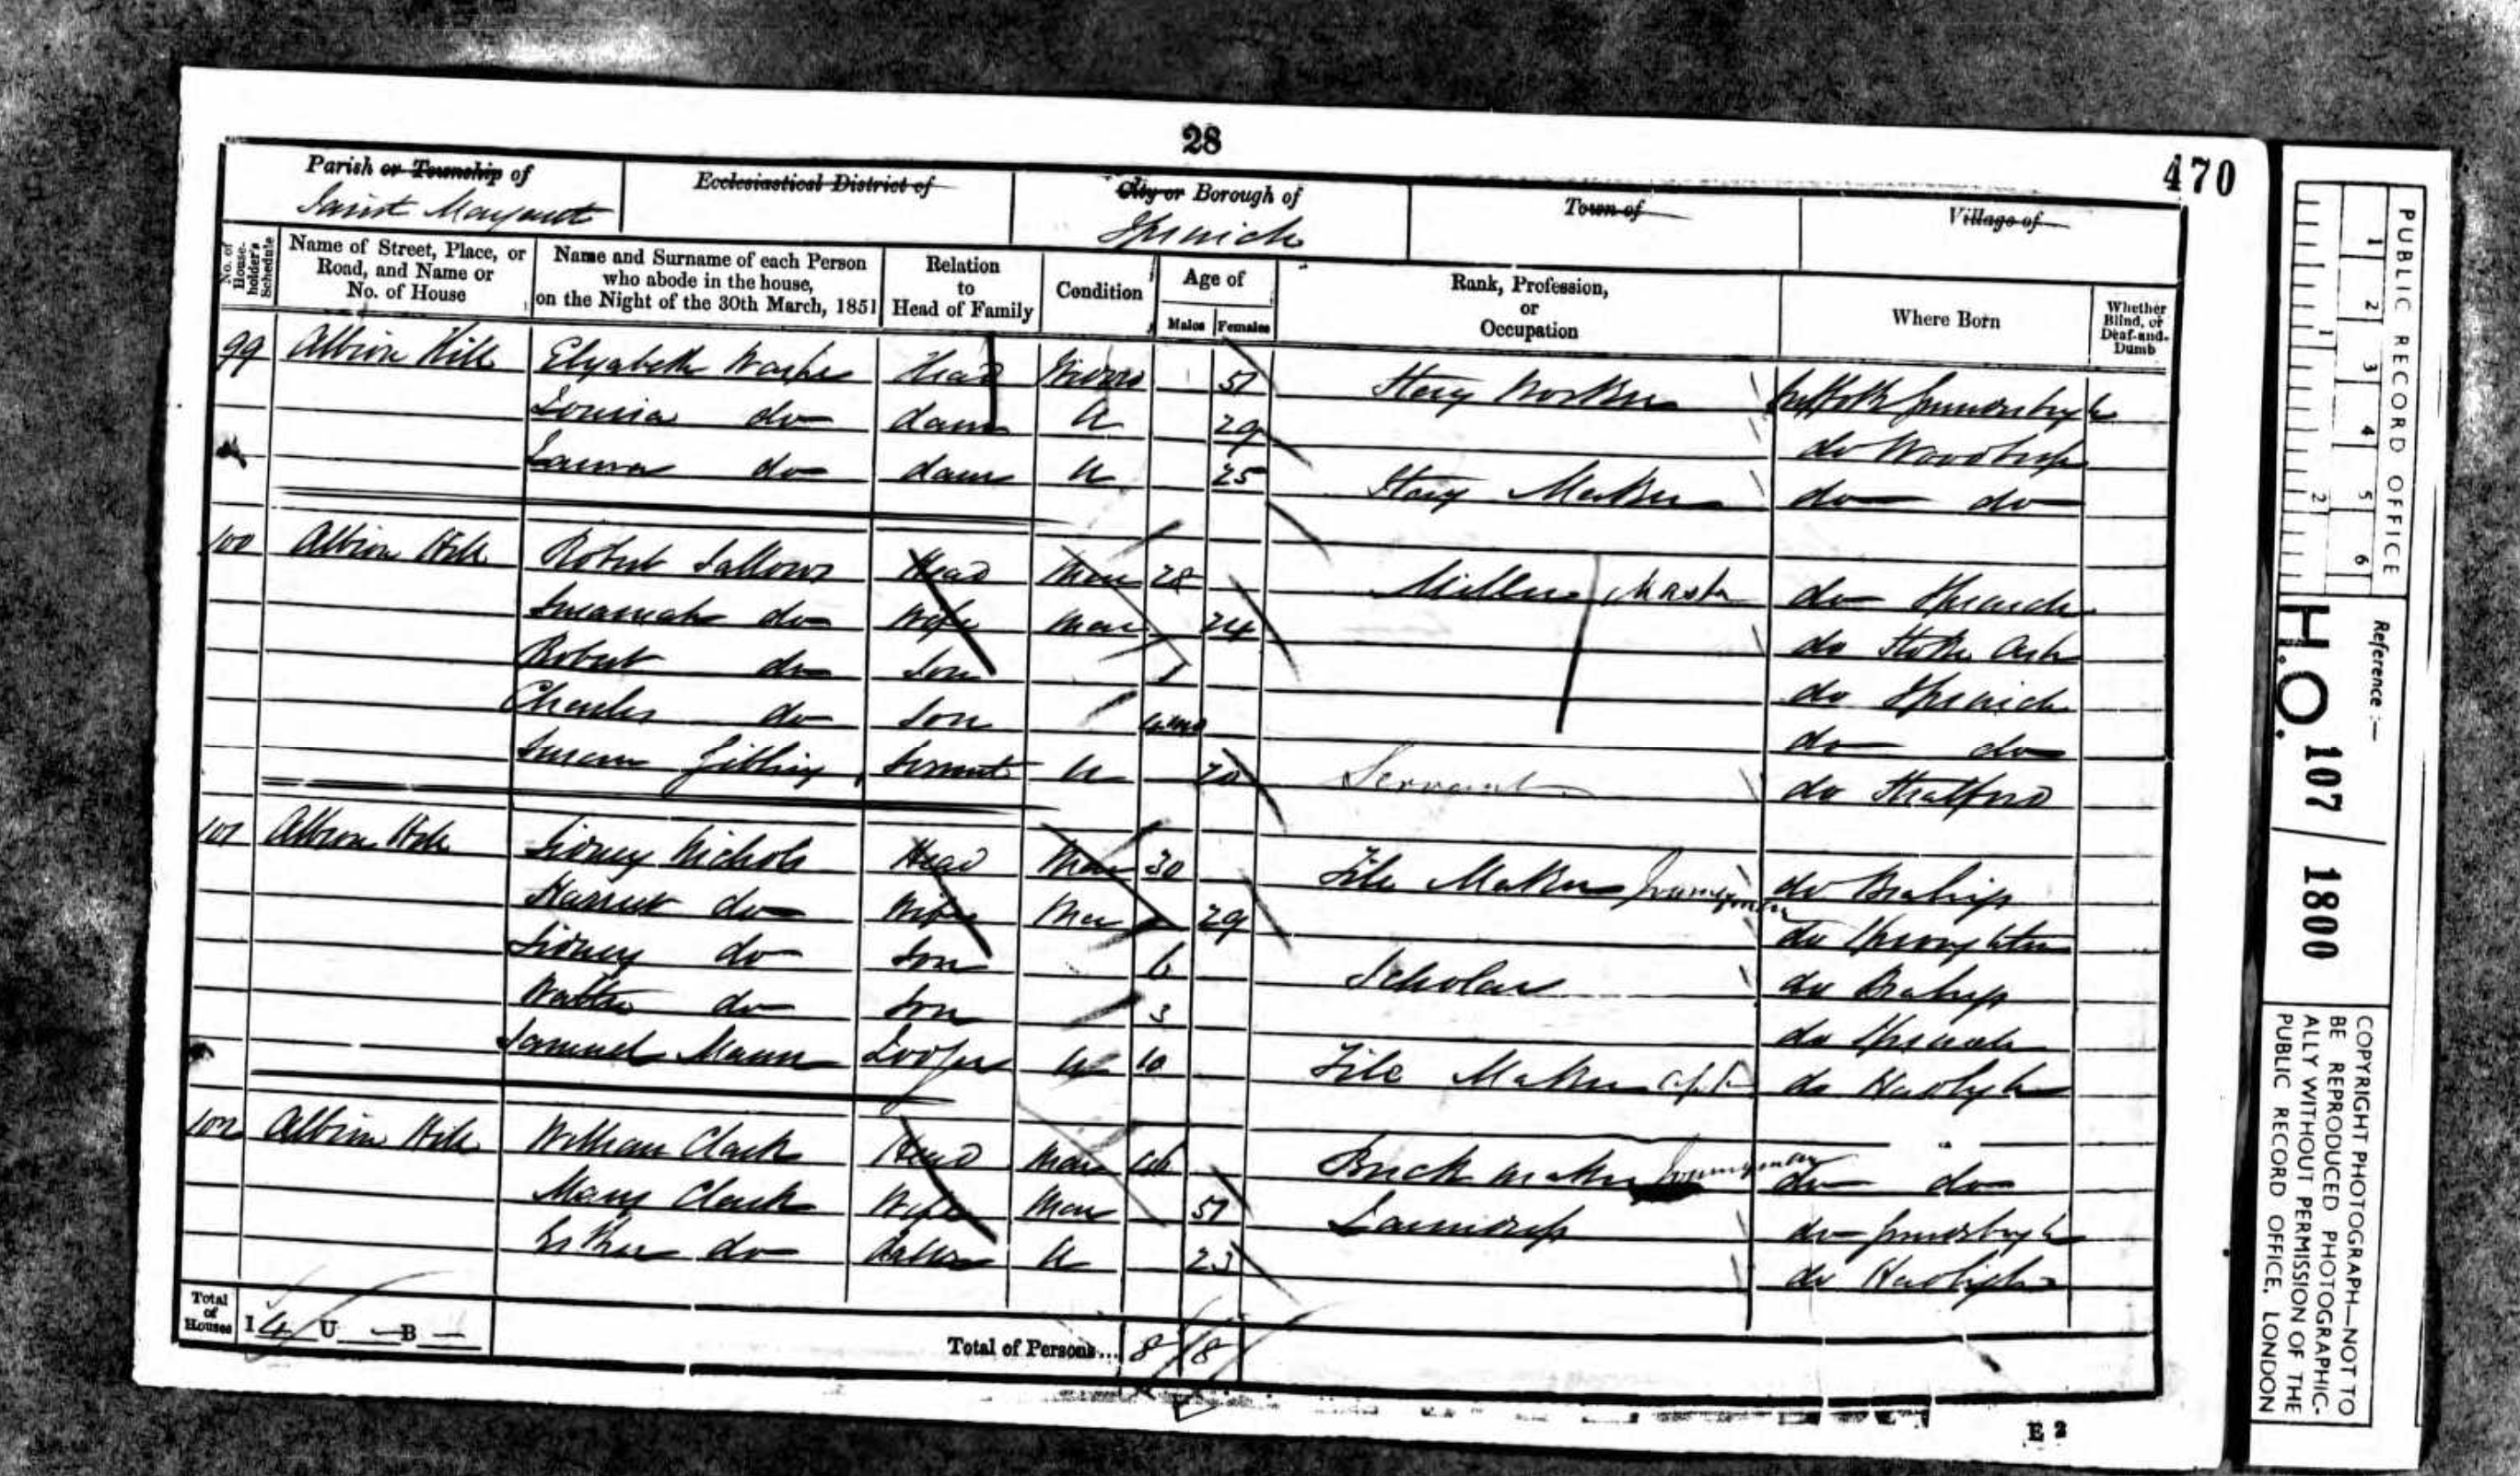 28
470
Parish or Township of
Saint Margaret
Ecclesiastical District of
City or Borough of
Ipswich
Town of
Village of
No. of House-holder's Schedule
Name of Street, Place, or Road, and Name or No. of House
Name and Surname of each Person who abode in the house, on the Night of the 30th March, 1851
Relation to Head of Family
Condition
Age of
Males Females
Rank, Profession, or Occupation
Where Born
Whether Blind, or Deaf-and-Dumb
99 Albion Hill Elizabeth Head Widow 51 Stay Worker Suffolk Grundisburgh
Louisa do daur U 29 do Woodbridge
Laura do daur U 25 Stay Maker do do
100 Albion Hill Robert Sallows Head Mar 28 Miller Master do Ipswich
do Wife Mar 24 do Stoke Ash
Robert do Son 1 do Ipswich
Charles do Son do do
Susan Servant U 20 Servant do Stratford
101 Albion Hill Sidney Nichols Head Mar 30 Tile Maker Journeyman do
Harriet do Wife Mar 29 do Sproughton
Sidney do Son 6 Scholar do
Walter do Son 3 do Ipswich
Samuel Mann Lodger U Tile Maker do Hadleigh
102 Albion Hill William Clark Head Mar Brick maker Journeyman do do
Mary Clark Wife Mar 51 Laundress do Grundisburgh
Esther do U 23 do Hadleigh
Total of Houses I 4 U — B —
Total of Persons... 8 8
E 2
PUBLIC RECORD OFFICE
1 2 3 4 5 6
1 2
Reference :—
H.O. 107 / 1800
COPYRIGHT PHOTOGRAPH—NOT TO
BE REPRODUCED PHOTOGRAPHIC-
ALLY WITHOUT PERMISSION OF THE
PUBLIC RECORD OFFICE, LONDON